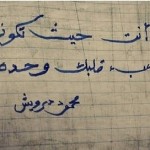 أنت حيث تكون
قلبك وحده
محمود درويش